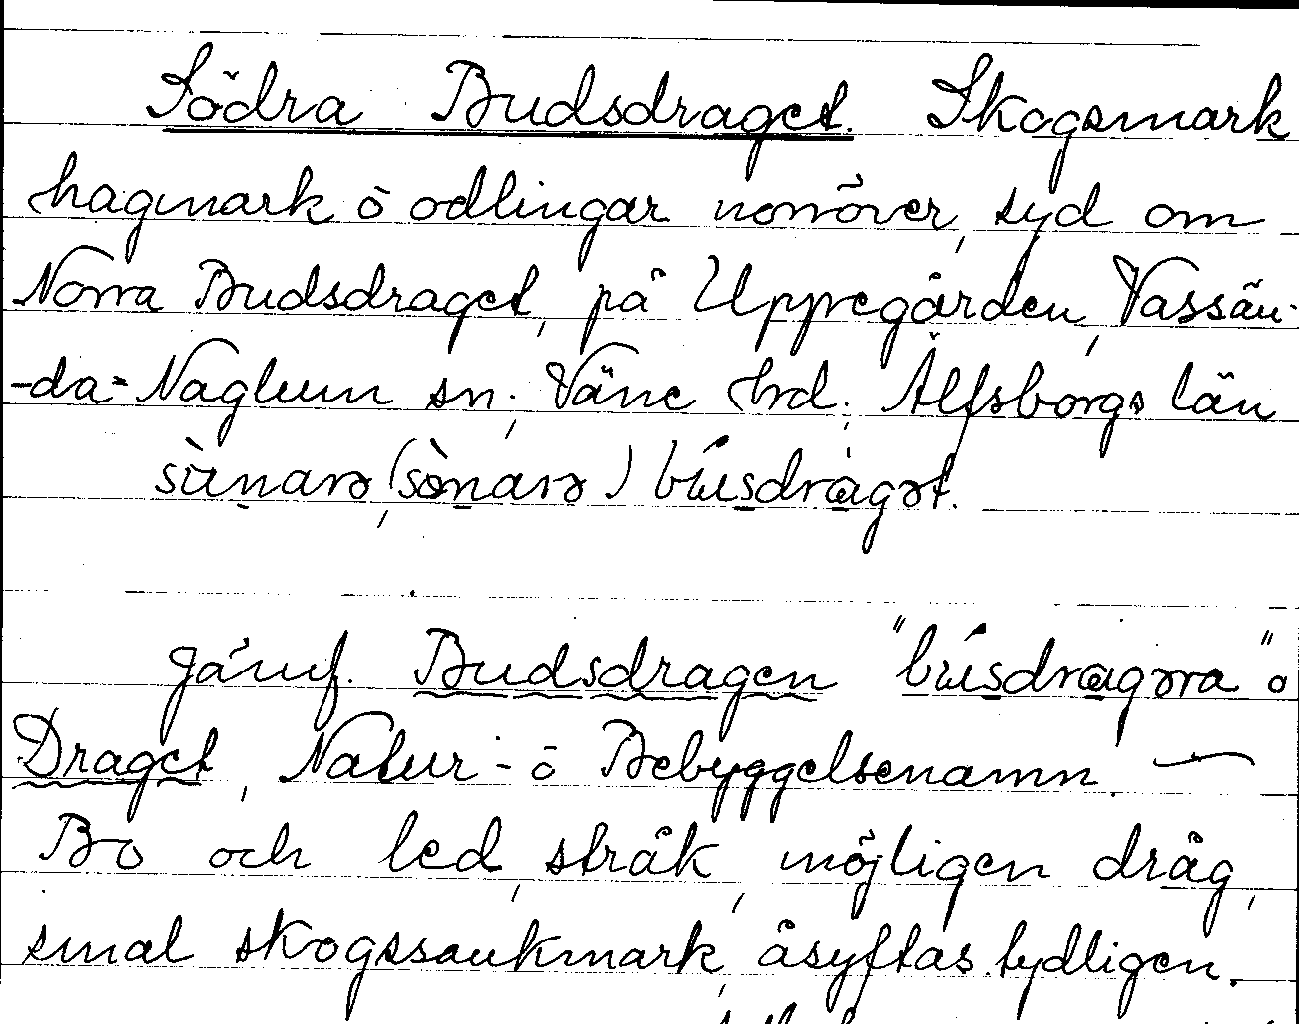 Södra Budsdraget. Skogsmark
hagmark ō odlingar norröver, syd om
Norra Budsdraget, på Uppregården, Vassän-
-da-Naglum sn; Väne hrd; Älfsborgs län
sùnarə, (sònarə) búsdragət.
jämf. Budsdragen "búsdragərra" o
Draget, Natur- ō Bebyggelsenamn. —
Bo och led, stråk, möjligen dråg,
smal skogssankmark, åsyftas tydligen.